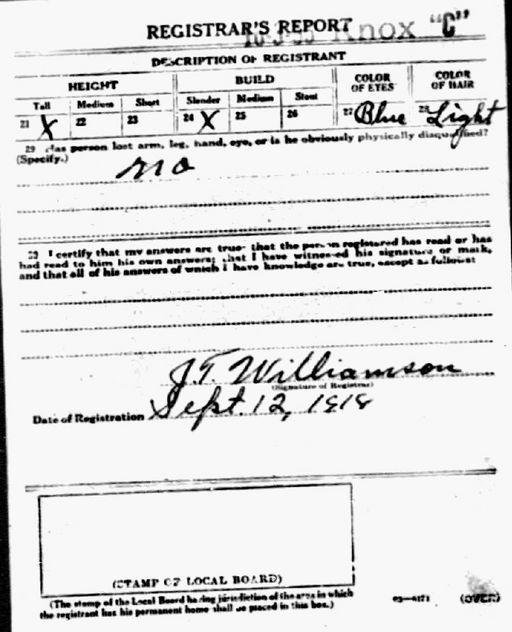 REGISTRAR'S REPORT
Knox "C"
DESCRIPTION OF REGISTRANT
HEIGHT BUILD COLOR OF EYES COLOR OF HAIR
Tall Medium Short Slender Medium Stout
21 X 22 23 24 X 25 26 27 Blue 28 Light
29 Has person lost arm, leg, hand, eye, or is he obviously physically disqualified?
(Specify.)
no
30 I certify that my answers are true; that the person registered has read or has
had read to him his own answers; that I have witnessed his signature or mark,
and that all of his answers of which I have knowledge are true, except as follows:
J.T. Williamson
(Signature of Registrar)
Date of Registration Sept. 12, 1918
(STAMP OF LOCAL BOARD)
(The stamp of the Local Board having jurisdiction of the area in which
the registrant has his permanent home shall be placed in this box.)
03—6171 (OVER)